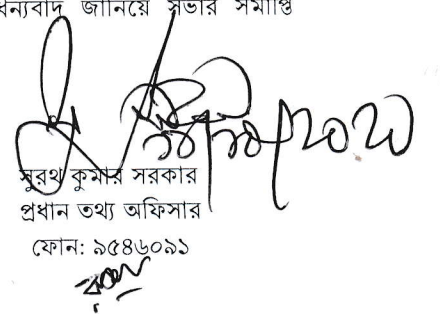 ধন্যবাদ জানিয়ে সভার সমাপ্তি
সুরথ কুমার সরকার
প্রধান তথ্য অফিসার
ফোন: ৯৫৪৬০৯১